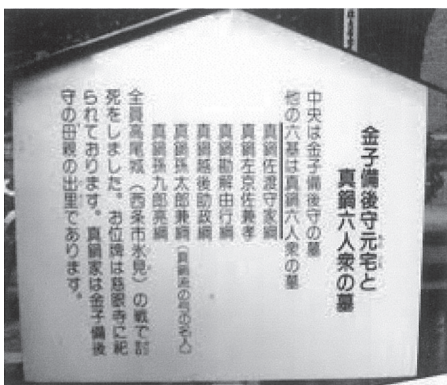 金子備後守元宅と
真鍋六人衆の墓
中央は金子備後守の墓
他の六基は真鍋六人衆の墓
真鍋佐渡守家綱
真鍋左京佐兼孝
真鍋勘解由行綱
真鍋越後助政綱
真鍋孫太郎兼綱(真鍋流の弓の名人)
真鍋孫九郎亮綱
全員高尾城(西条市氷見)の戦で討
死をしました。お位牌は慈眼寺に祀
られております。真鍋家は金子備後
守の母親の出里であります。